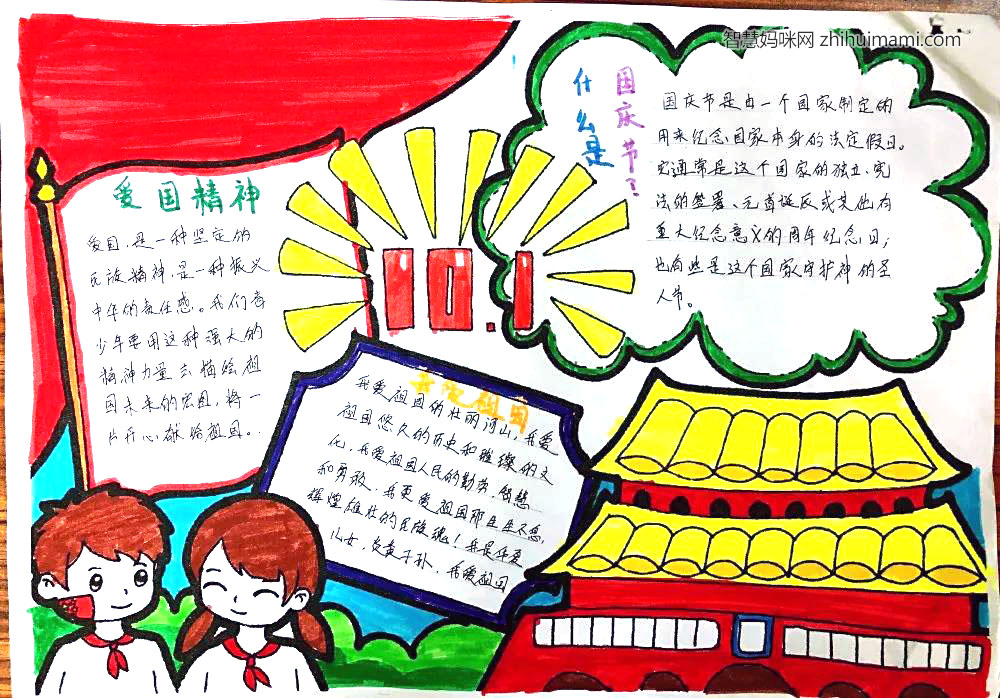 智慧妈咪网 zhihuimami.com
什么是
国庆节？
国庆节是由一个国家制定的
用来纪念国家本身的法定假日。
它通常是这个国家的独立、宪
法的签署、元首诞辰或其他有
重大纪念意义的周年纪念日；
也有些是这个国家守护神的圣
人节。
爱国精神
爱国，是一种坚定的
民族精神，是一种振兴
中华的责任感。我们青
少年要用这种强大的
精神力量去描绘祖
国未来的宏图，将一
片丹心献给祖国。
10.1
我爱祖国
我爱祖国的壮丽河山，我爱
祖国悠久的历史和璀璨的文
化，我爱祖国人民的勤劳、智慧
和勇敢，我更爱祖国那生生不息，
辉煌雄壮的民族魂！我是华夏
儿女，炎黄子孙，我爱祖国